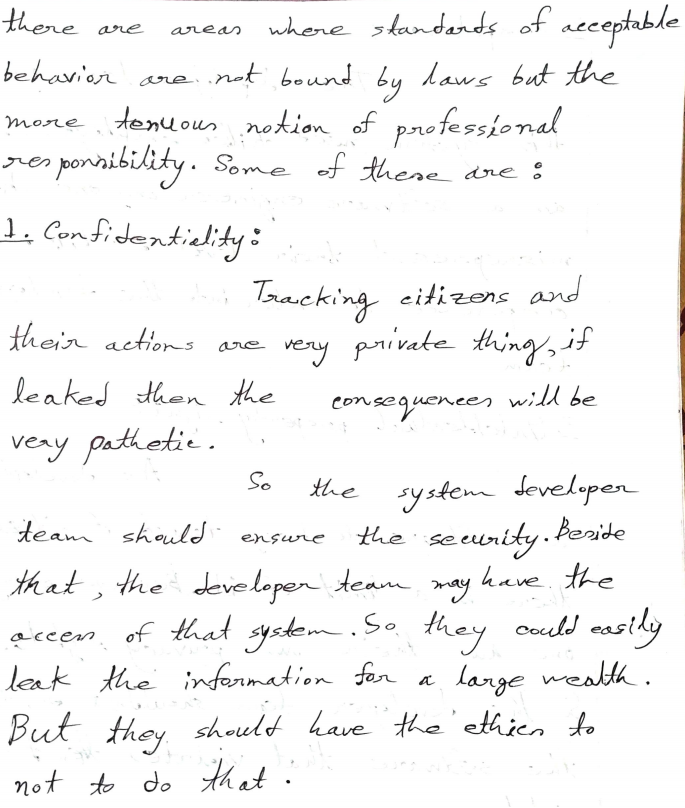 there are areas where standards of acceptable
behavior are not bound by laws but the
more tenuous notion of professional
responsibility. Some of these are :
1. Confidentiality :
Tracking citizens and
their actions are very private thing, if
leaked then the consequences will be
very pathetic.
So the system developer
team should ensure the security. Beside
that, the developer team may have the
access of that system. So they could easily
leak the information for a large wealth.
But they should have the ethics to
not to do that.